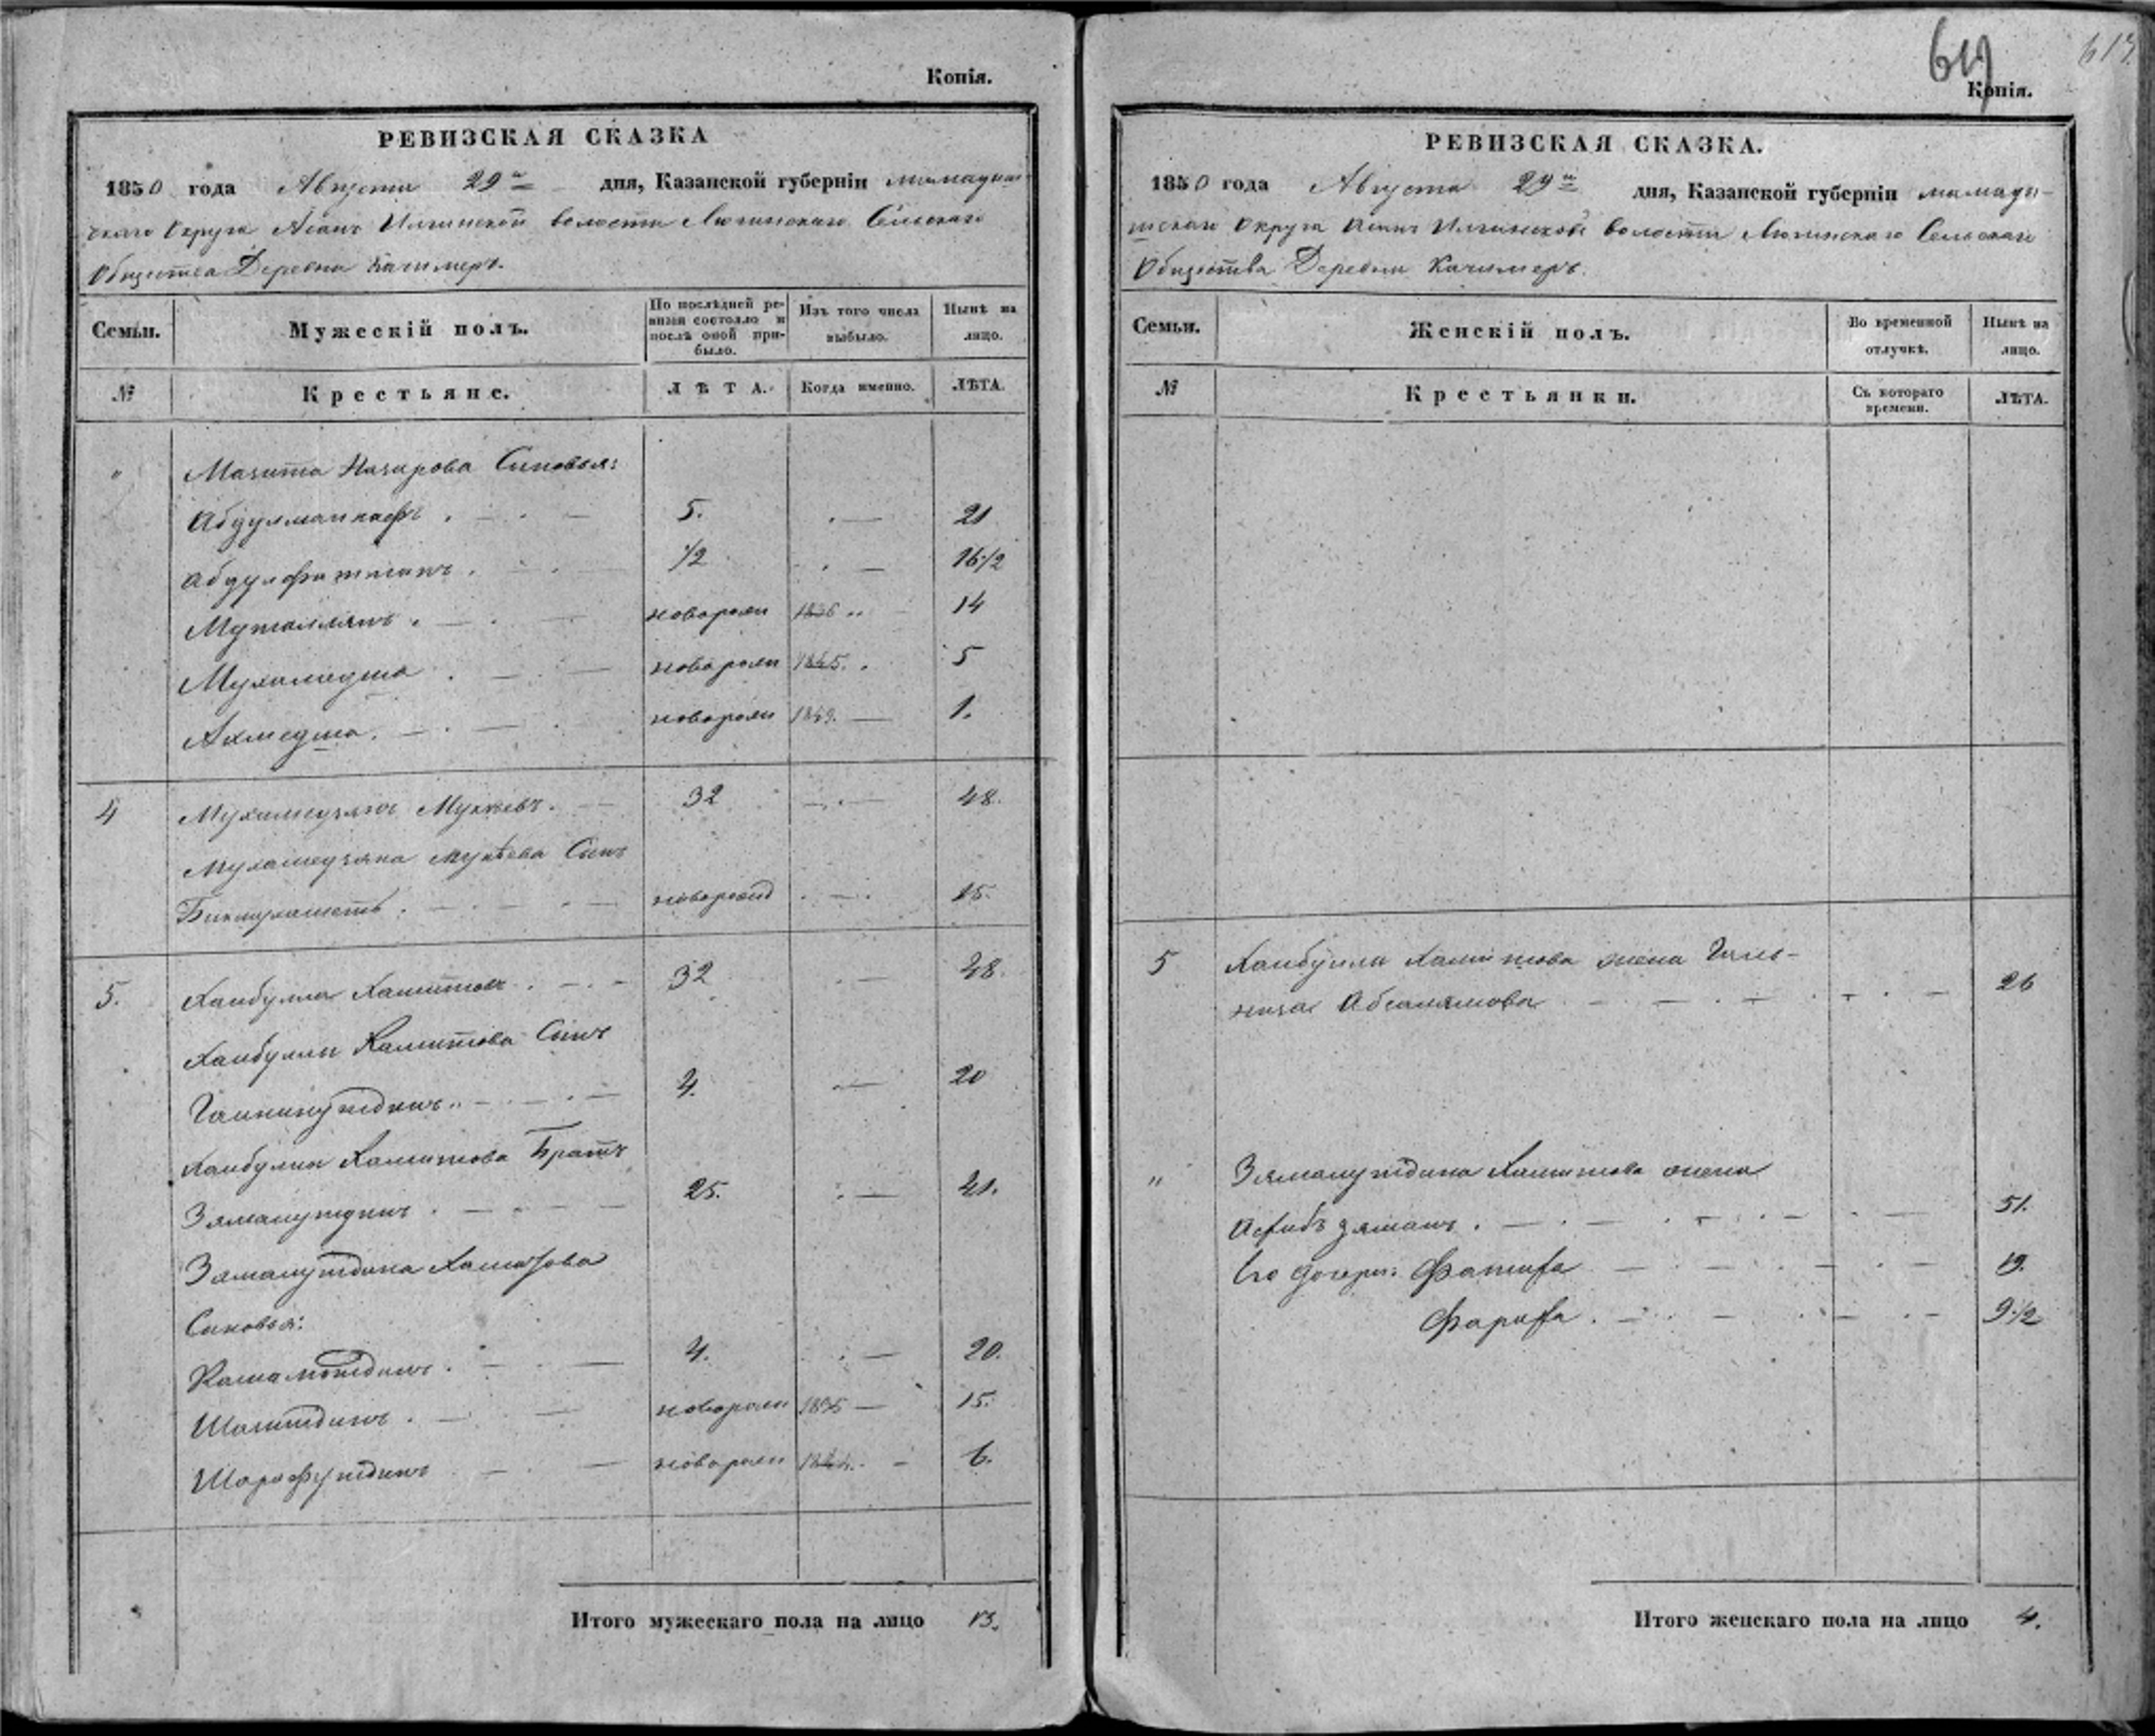 Копія.
РЕВИЗСКАЯ СКАЗКА
1850 года Августа 29 дня, Казанской губерніи Мамадыш-
скаго Округа Асанъ Илгинской волости Люгинскаго Сельскаго
Общества Деревни Качимеръ.
Семьи.
Мужескій полъ.
По послѣдней ре-
визіи состояло и
послѣ оной при-
было.
Изъ того числа
выбыло.
Нынѣ на
лицо.
№
Крестьяне.
ЛѢТА.
Когда именно.
ЛѢТА.
" Мачита Назирова Сыновья:
Абдулманнафъ 5. 21
16½
½
новорожд 1836 14
Мухамедша новорожд 1845. 5
Ахмедша новорожд 1849. 1.
4 Мухамедзянъ Мукѣевъ. 32 48.
Мухамедзяна Мукѣева Сынъ
Бикмухаметь новорожд 15.
5. Хаибулла Хамитовъ 32 48.
Хаибуллы Хамитова Сынъ
Гайнинутдинъ 4. 20
Хаибуллы Хамитова Братъ
Зяманутдинъ 25. 41.
Заманутдина Хамитова
Сыновья:
4. 20.
новорожд 1835 15.
Шарафутдинъ новорожд 1844. 6.
Итого мужескаго пола на лицо 13.
619
613
Копія.
РЕВИЗСКАЯ СКАЗКА.
1850 года Августа 29 дня, Казанской губерніи Мамады-
шскаго Округа Асанъ Илгинской волости Люгинскаго Сельскаго
Общества Деревни Качимеръ.
Семьи.
Женскій полъ.
Во временной
отлучкѣ.
Нынѣ на
лицо.
№
Крестьянки.
Съ котораго
времени.
ЛѢТА.
5 Хаибуллы Хамитова жена Галь-
ниса Абсалямова 26
" Зяманутдина Хамитова жена
зяманъ 51.
Его дочери: Фатифа 19.
Фарифа 9½
Итого женскаго пола на лицо 4.